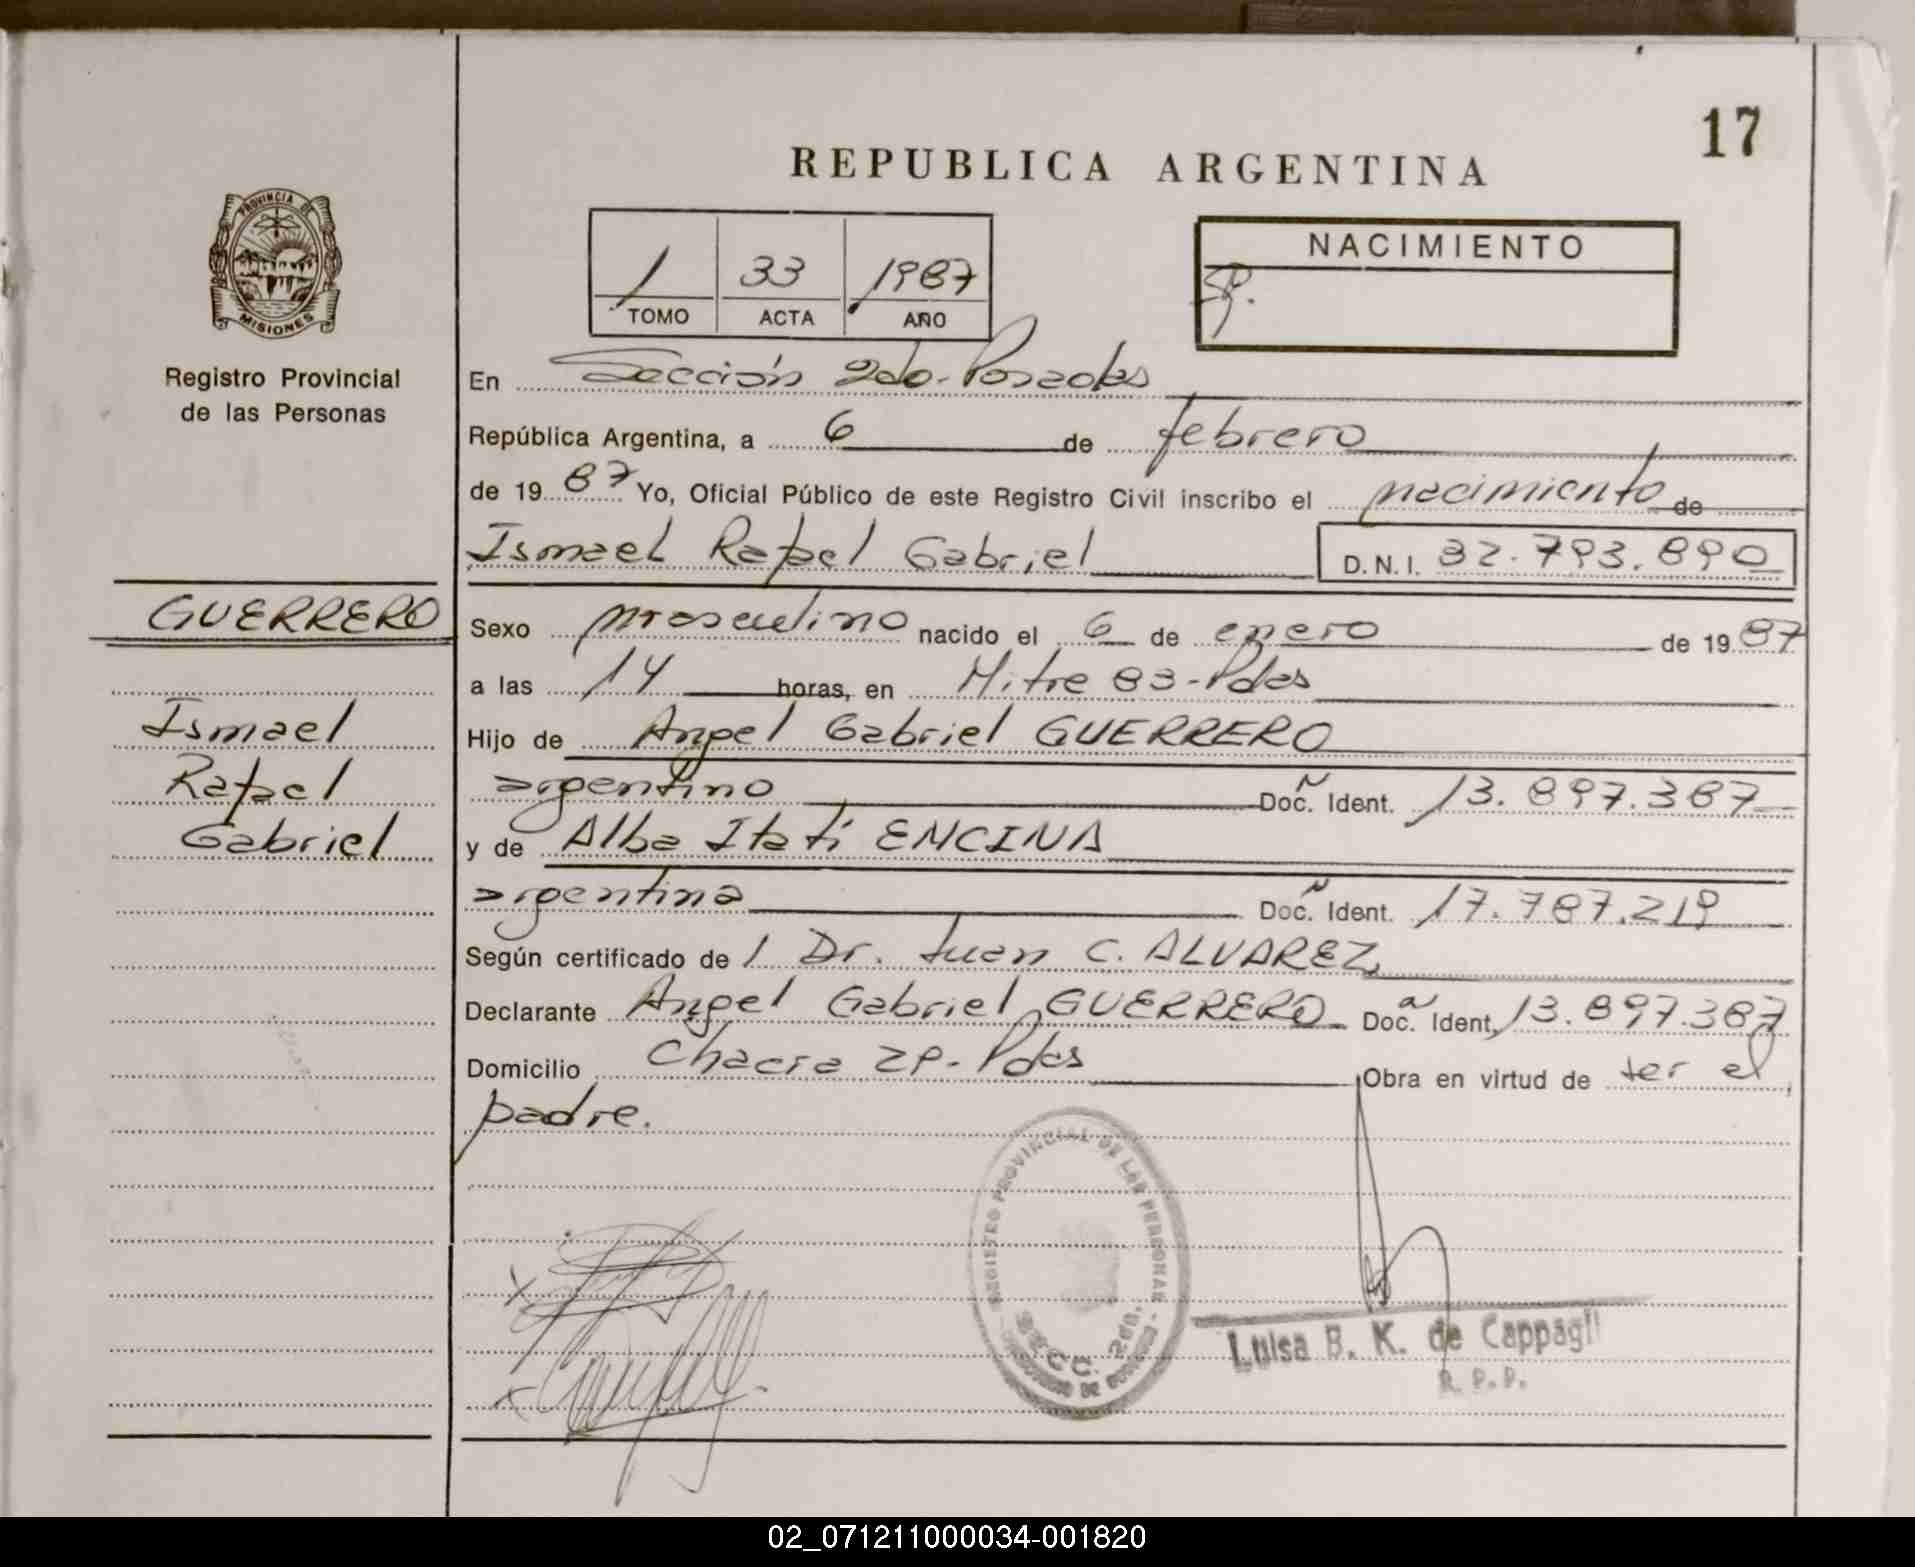 17
REPUBLICA ARGENTINA
PROVINCIA DE
MISIONES
Registro Provincial
de las Personas
1 33 1987
TOMO ACTA AÑO
NACIMIENTO
En Sección 2do. Posadas
República Argentina, a 6 de febrero
de 1987 Yo, Oficial Público de este Registro Civil inscribo el nacimiento de
Ismael Rafael Gabriel D.N.I. 32.793.890
GUERRERO
Ismael
Rafael
Gabriel
Sexo masculino nacido el 6 de enero de 1987
a las 14 horas, en Mitre 83-Pdas
Hijo de Angel Gabriel GUERRERO
argentino Doc. Ident. 13.897.387
y de Alba Itati ENCINA
argentina Doc. Ident. 17.787.219
Según certificado de l Dr. Juan C. ALVAREZ
Declarante Angel Gabriel GUERRERO Doc. Ident. 13.897.387
Domicilio Chacra 29-Pdas Obra en virtud de ser el
padre.
REGISTRO PROVINCIAL DE LAS PERSONAS
SECC. 2da.
Luisa B. K. de Cappagli
R. P. P.
02_071211000034-001820